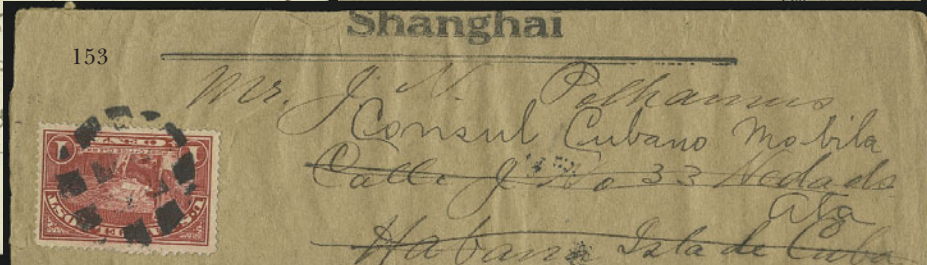 Shanghai
153
Mr. J. N. Polhamus
Consul Cubano Mobila
Calle J No 33 Vedado
Ala
Habana Isla de Cuba
1 CENT 1
U.S. PARCEL POST